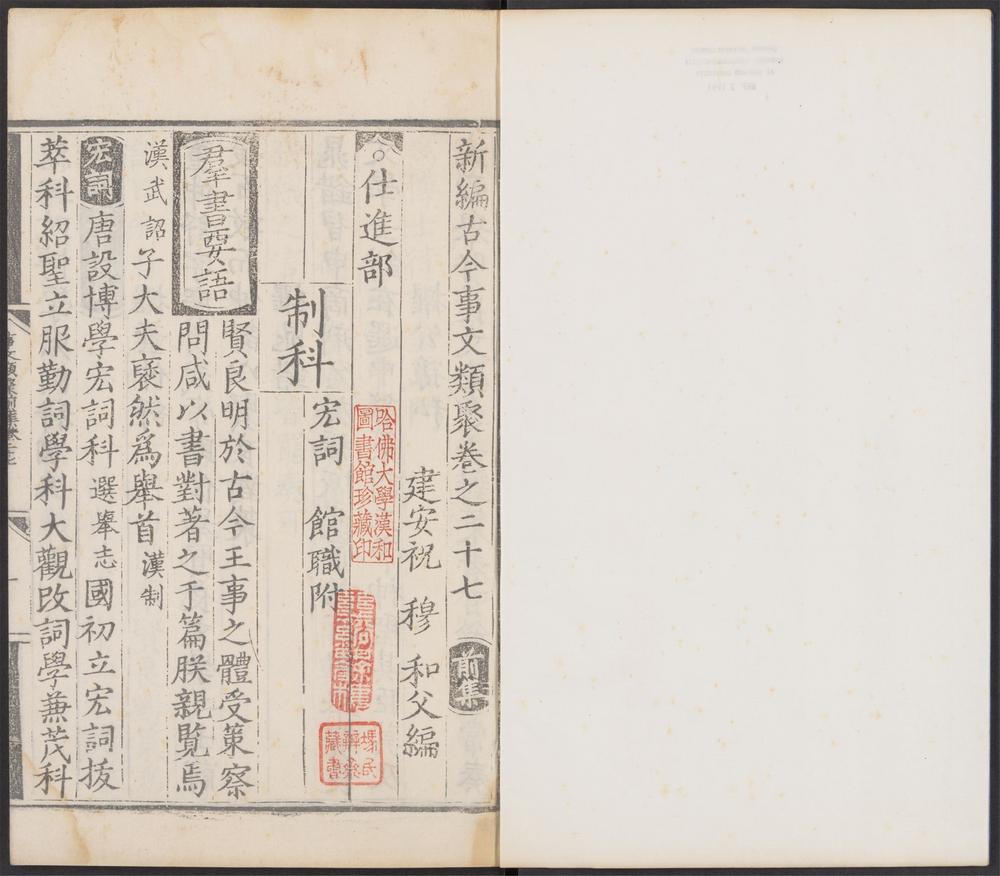 新編古今事文類聚卷之二十七 前集
建安祝 穆 和父編
○仕進部
制科 宏詞 館職附
羣書要語 賢良明於古今王事之體受策察
問咸以書對著之于篇朕親覽焉
漢武詔 子大夫褎然爲舉首 漢制
宏詞 唐設博學宏詞科 選舉志 國初立宏詞拔
萃科紹聖立服勤詞學科大觀改詞學兼茂科
哈佛大學漢和
圖書館珍藏印